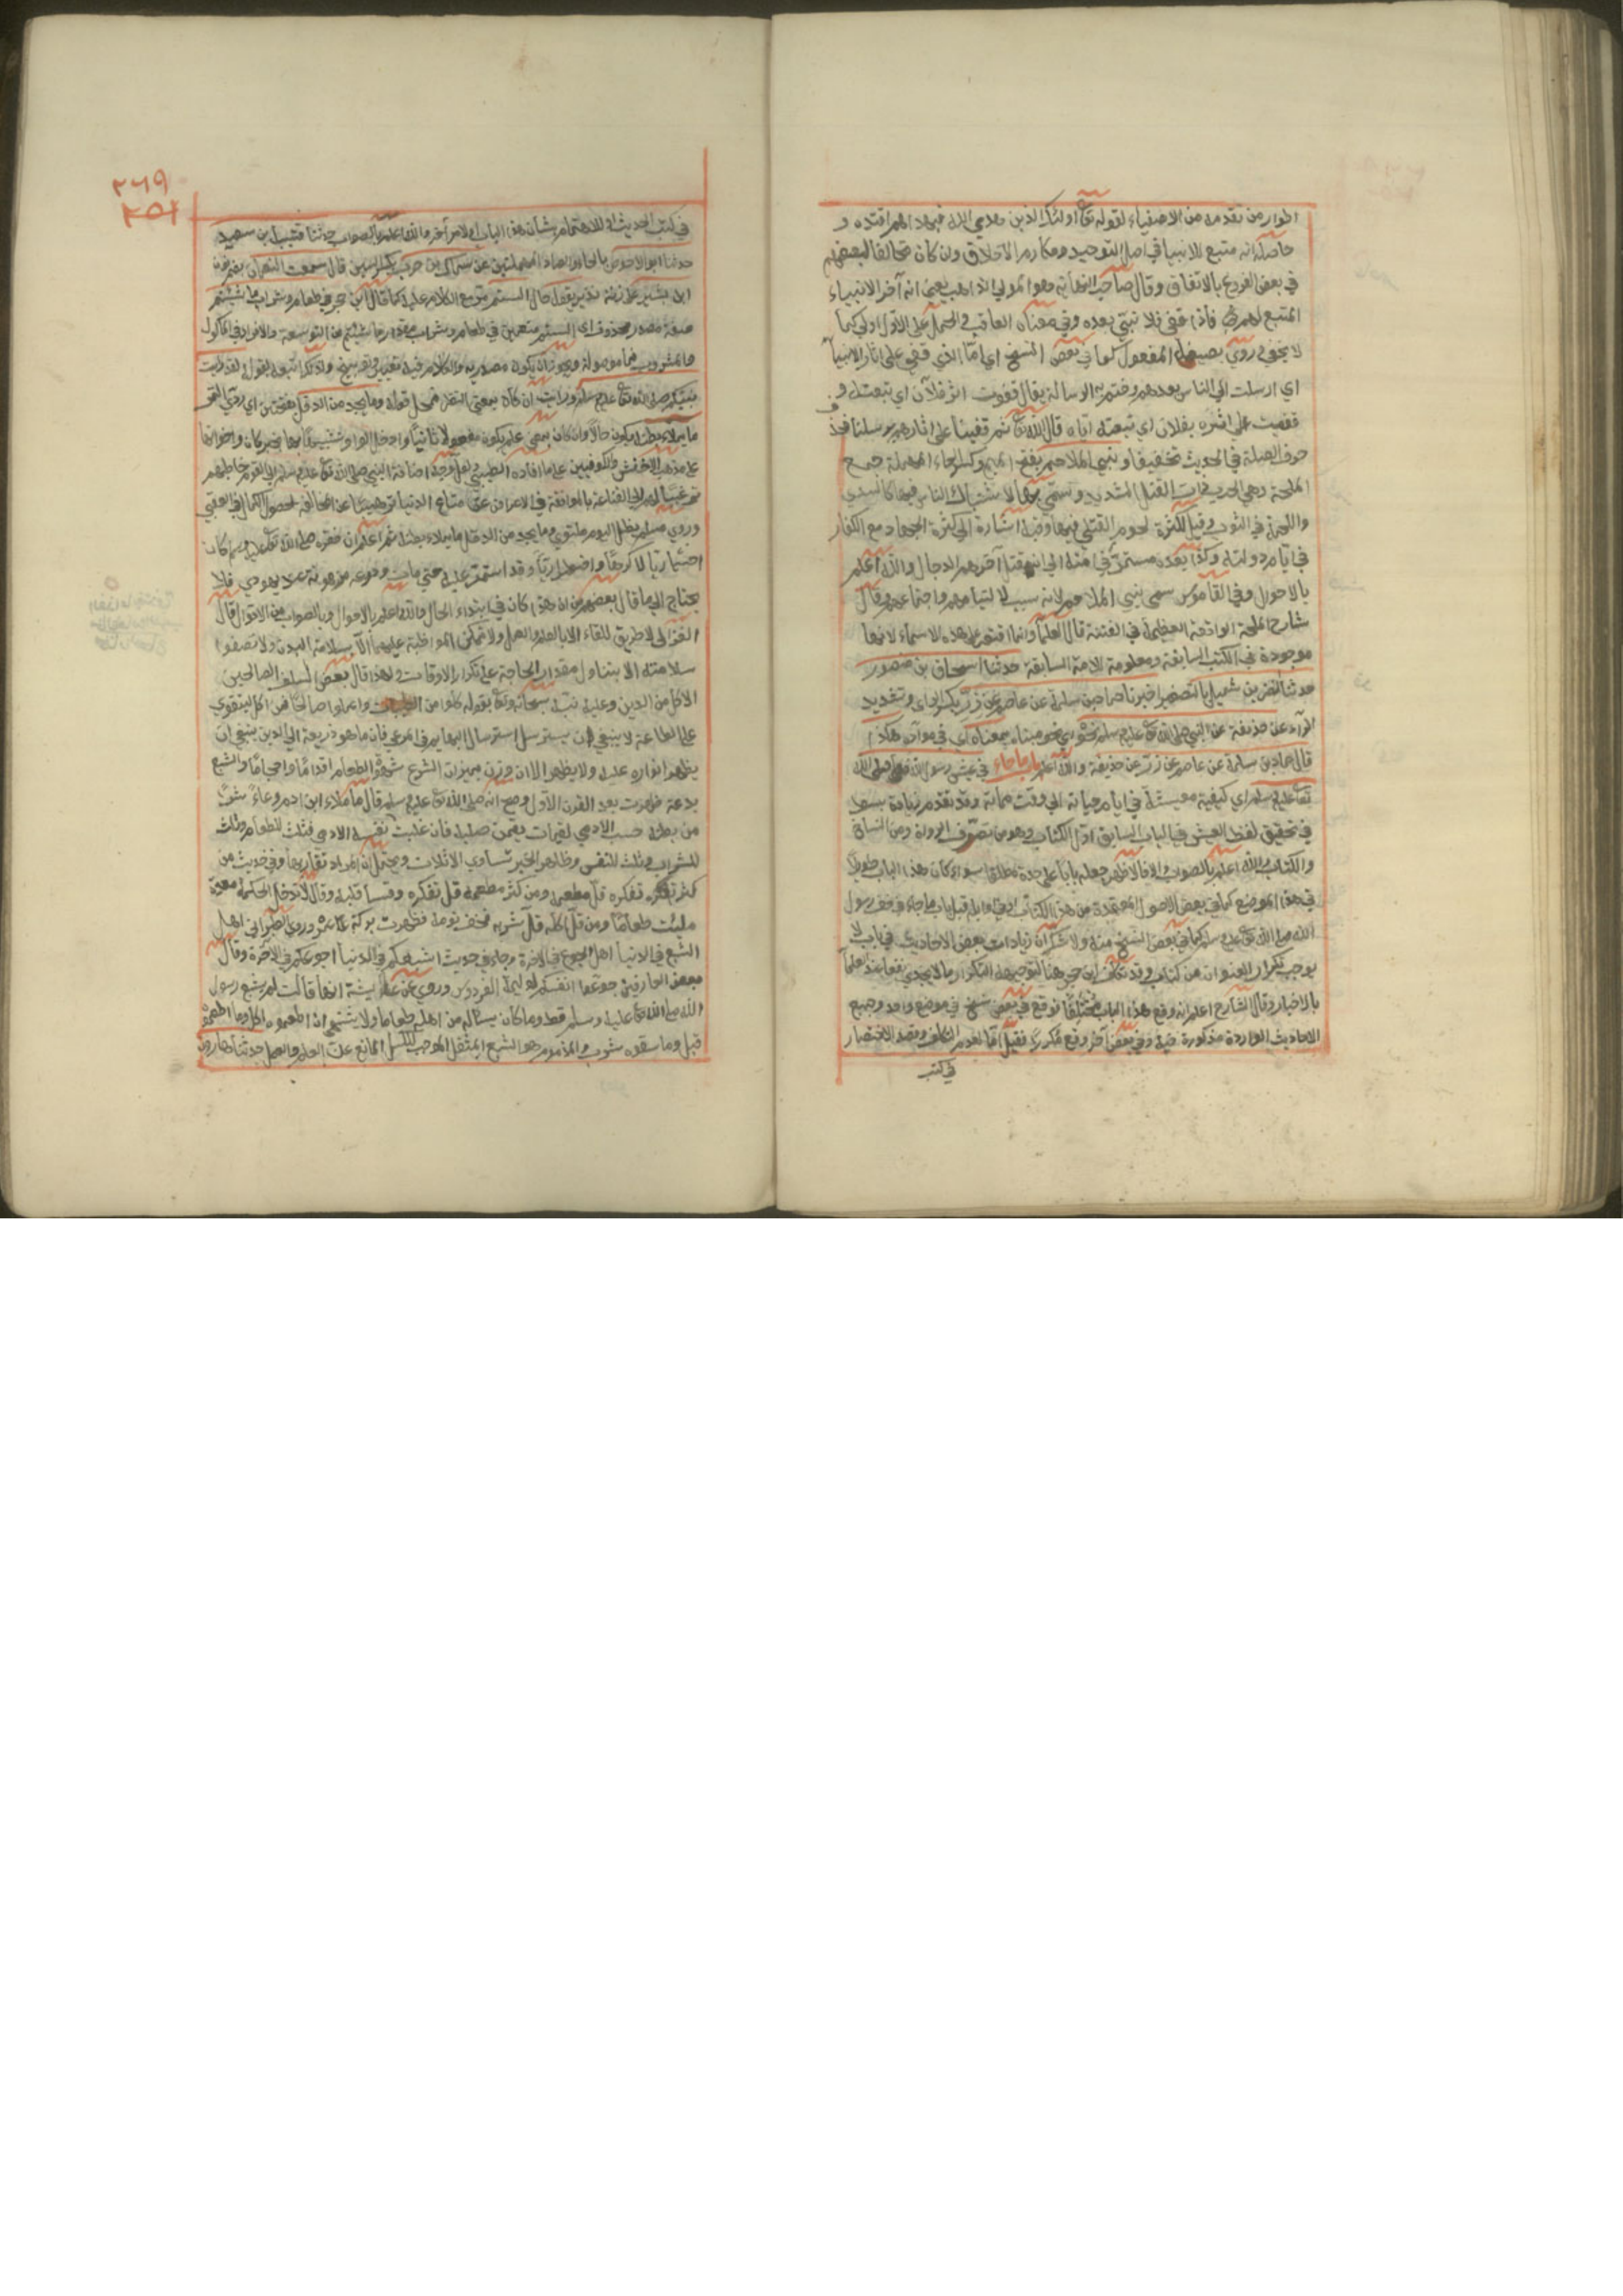 الوارد من تقدمه من الاصفياء لقوله تع اولئك الذين هدى الله فبهداهم اقتده و
حاصله انه متبع للانبيا في اصل التوحيد ومكارم الاخلاق وان كان مخالفا لبعضهم
في بعض الفروع بالاتفاق وقال صاحب النهاية وهو المولي الذاهب يعني انه آخر الانبياء
المتبع لهم فاذا قفى فلا نبي بعده وفي معناه العاقب والحمل على الاول اولى كما
لا يخفى وروي بصيغة المفعول كما في بعض النسخ اي انا الذي قفي على اثار الانبيا
اي ارسلت الى الناس بعدهم وختم بي الرسالة يقال قفوت اثر فلان اي تبعته و
قفيت على اثره بفلان اي تبعته اياه قال الله تع ثم قفينا على اثارهم برسلنا فحذف
حرف الصلة في الحديث تخفيفا ونبي الملاحم بفتح الميم وكسر الحاء المهملة جمع
الملحمة وهي الحرب ذات القتل الشديد وسمي بها لاشتباك الناس فيها كالسدى
واللحمة في الثوب وقيل لكثرة لحوم القتلى فيها وفيه اشارة الى كثرة الجهاد مع الكفار
في ايام دولته وكذا بعده مستمر في امته الى ان يقتل آخرهم الدجال والله اعلم
بالاحوال وفي القاموس سمي نبي الملاحم لانه سبب لالتيامهم واجتماعهم وقال
شارح الملحمة الواقعة العظيمة في الفتنة قال العلماء وانما اقتصر على هذه الاسماء لانها
موجودة في الكتب السابقة ومعلومة للامة السابقة حدثنا اسحاق بن منصور
حدثنا النضر بن شميل بالتصغير اخبرنا حماد بن سلمة عن عاصم عن زر بكسر زاى وتشديد
الراء عن حذيفة عن النبي صلى الله تع عليه وسلم نحوه اي نحو مبناه بمعناه اي في موآده هكذا
قال حماد بن سلمة عن عاصم عن زر عن حذيفة والله اعلم باب ماجاء في عيش رسول الله صلى الله
تع عليه وسلم اي كيفية معيشته في ايام حياته الى وقت مماته وقد تقدم زيادة بسط
في تحقيق لفظ العيش في الباب السابق اول الكتاب وهو من تصرف الرواة ومن النساخ
والكتاب والله اعلم بالصواب والا فالاظهر جعله بابا على حدة مطلقا سواء كان هذا الباب طويلا
في هذا الموضع كما في بعض الاصول المعتمدة من هذا الكتاب او في اوايله قبل باب ماجاء في خف رسول
الله صلى الله تع عليه وسلم كما في بعض النسخ منه ولا شك ان زيادات بعض الاحاديث في باب لا
يوجب تكرار العنوان من كتاب وقد تكلف ابن حجر هنا لتوجيهه التكرار بما لا يجدي نفعا عند العلماء
بالاخبار وقال الشارح اعلم انه وقع هذا الباب مختلفا فوقع في بعض نسخ في موضع واحد وجميع
الاحاديث الواردة مذكورة فيه وفي بعض آخر وقع مكررا فقيل اما لعدم التكلف وقصد الاختصار
في كتب
٢٦٩
٢٥١
في كتب الحديث او للاهتمام بشان هذا الباب او لامر آخر والله اعلم بالصواب حدثنا قتيبة بن سعيد
حدثنا ابو الاحوص بالحاء والصاد المهملتين عن سماك بن حرب بكسر السين قال سمعت النعمان
ابن بشير يقول الستم في طعام وشراب ما شئتم
صفة مصدر محذوف اي الستم متنعمين في طعام وشراب مقدار ما شئتم من التوسعة والافراط في المأكول
والمشروب فما موصولة ويجوز ان يكون مصدرية والكلام فيه تعيير وتوبيخ ولذلك اتبعه بقوله لقد رايت
نبيكم صلى الله تع عليه وسلم ورايت ان كان بمعنى النظر فجعل قوله وما يجد من الدقل بفتحتين اي ردي التمر
ما يملاء بطنه يكون حالا وان كان بمعنى علم يكون مفعولا ثانيا وادخل الواو تشبيها بها بخبر كان واخواتها
على مذهب الاخفش والكوفيين على ما افاده الطيبي ولعل وجه اضافة النبي صلى الله تع عليه وسلم الى القوم خاطبهم
ترغيبا لهم الى القناعة بالموافقة في الاعراض عن متاع الدنيا وترهيبا عن المخالفة لحصول الكمال في العقبى
وروي مسلم يظل اليوم ملتوي وما يجد من الدقل ما يملاء بطنه ثم اعلم ان فقره صلى الله تع عليه وسلم كان
اختياريا لا كرها واضطراريا وقد استمر عليه حتى مات ودرعه مرهونة عند يهودي فلا
يحتاج الى ما قال بعضهم من ان هذا كان في ابتداء الحال والله اعلم بالاحوال وبالصواب من الاقوال قال
الغزالي لا طريق للقاء الا بالعلم والعمل ولا تمكن المواظبة عليهما الا بسلامة البدن ولا تصفوا
سلامته الا بتناول مقدار الحاجة على تكرار الاوقات ولهذا قال بعض السلف الصالحين
الاكل من الدين وعليه نبه سبحانه وتع بقوله كلوا من الطيبات واعملوا صالحا فمن اكل ليتقوي
على الطاعة لا ينبغي ان يسترسل استرسال البهايم في المرعى فان ما هو ذريعة الى الدين ينبغي ان
يظهر انواره عليه ولا يظهر الا ان وزن بميزان الشرع شهوة الطعام اقداما واحجاما والشبع
بدعة ظهرت بعد القرن الاول وصح انه صلى الله تع عليه وسلم قال ما ملاء ابن ادم وعاء شرا
من بطنه حسب الادمي لقيمات يقمن صلبه فان غلبت نفسه الادمي فثلث للطعام وثلث
للشراب وثلث للنفس وظاهر الخبر تساوي الاثلاث ويحتمل ان المراد تقاربها وفي حديث من
كثر تفكره قل مطعمه ومن كثر مطعمه قل تفكره وقسا قلبه وقال لا تدخل الحكمة معدة
مليئت طعاما ومن قل اكله قل شربه فخف نومه فظهرت بركة عمره وروي الطبراني اهل
الشبع في الدنيا اهل الجوع في الاخرة وجاء في حديث اشبعكم في الدنيا اجوعكم في الآخرة وقال
بعض العارفين جوعوا انفسكم لوليمة الفردوس وروي عن عائيشة انها قالت لم يشبع رسول
الله صلى الله تع عليه وسلم قط وما كان يسئال من اهله طعاما ولا يشتهي ان اطعموه اكل وما اطعموه
قبل وما سقوه شرب والمذموم هو الشبع المثقل الموجب للكسل المانع عن العلم والعمل حدثنا هارون